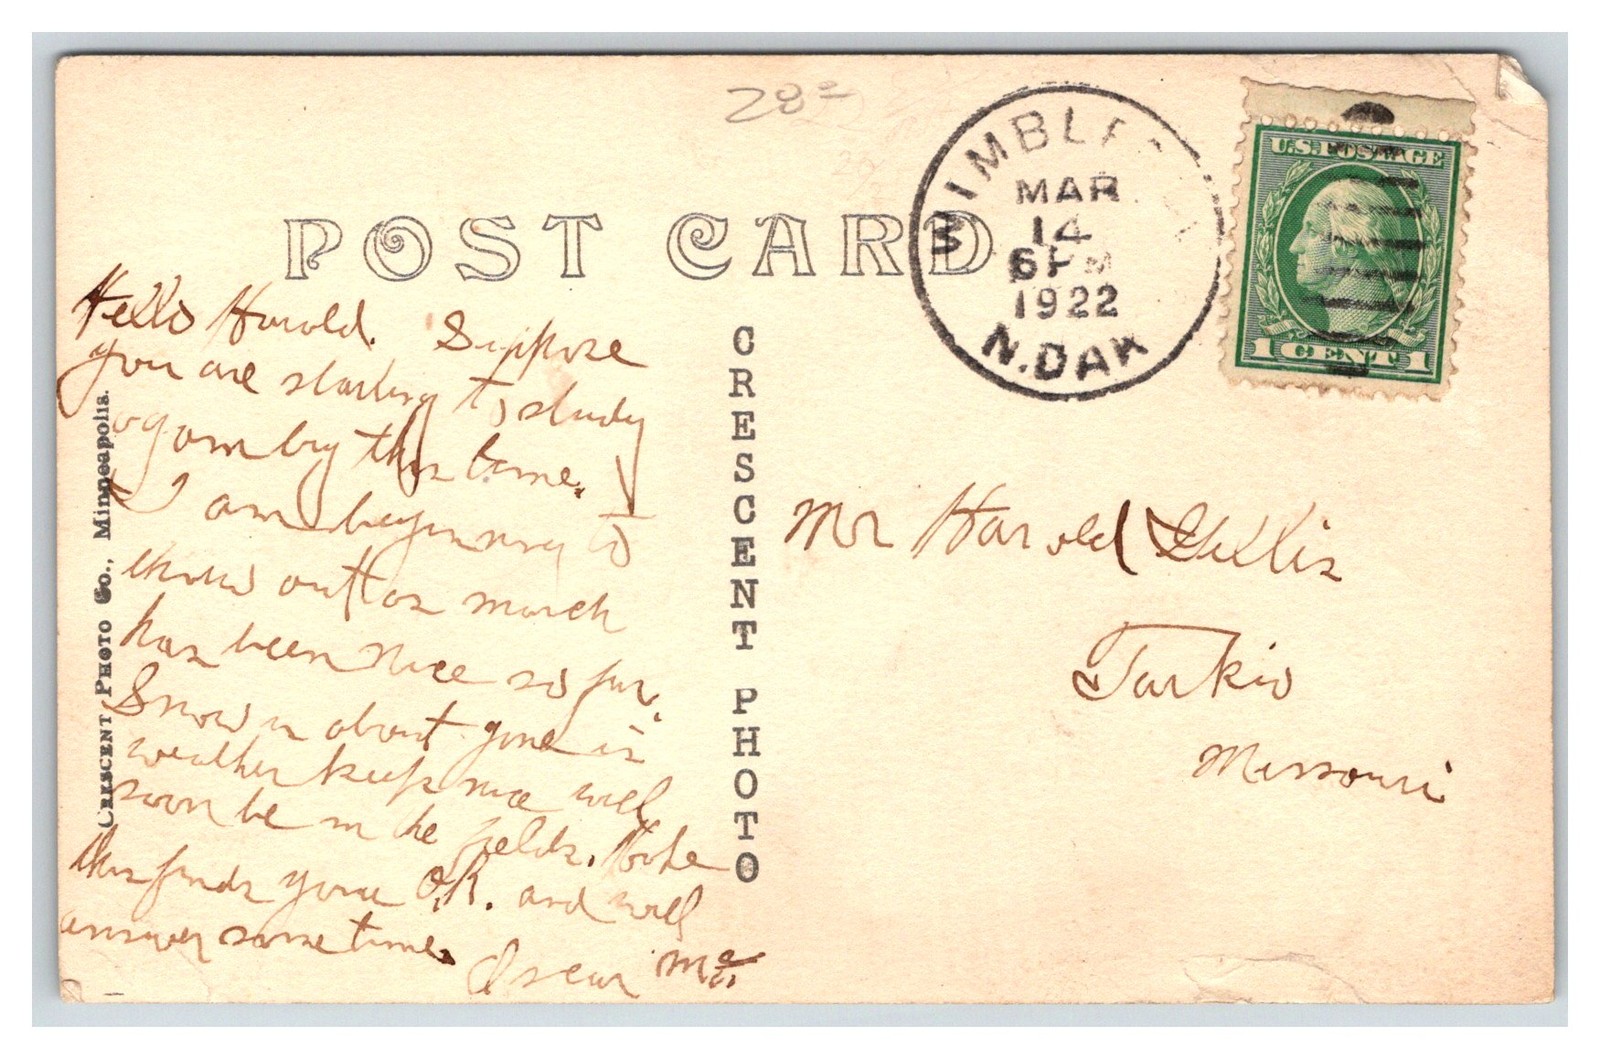 28
POST CARD
WIMBLE
MAR
14
6 PM
1922
N.DAK
U.S. POSTAGE
1 CENT 1
Hello Harold. Suppose
you are starting to study
again by this time.
I am beginning to
thaw out as march
has been nice so far.
Snow is about gone is
weather keeps nice will
soon be in the fields. Hope
this finds you O.K. and will
answer sometime.
Oscar Mc
CRESCENT PHOTO CO., Minneapolis.
CRESCENT PHOTO
Mr Harold Gillis
Tarkio
Missouri